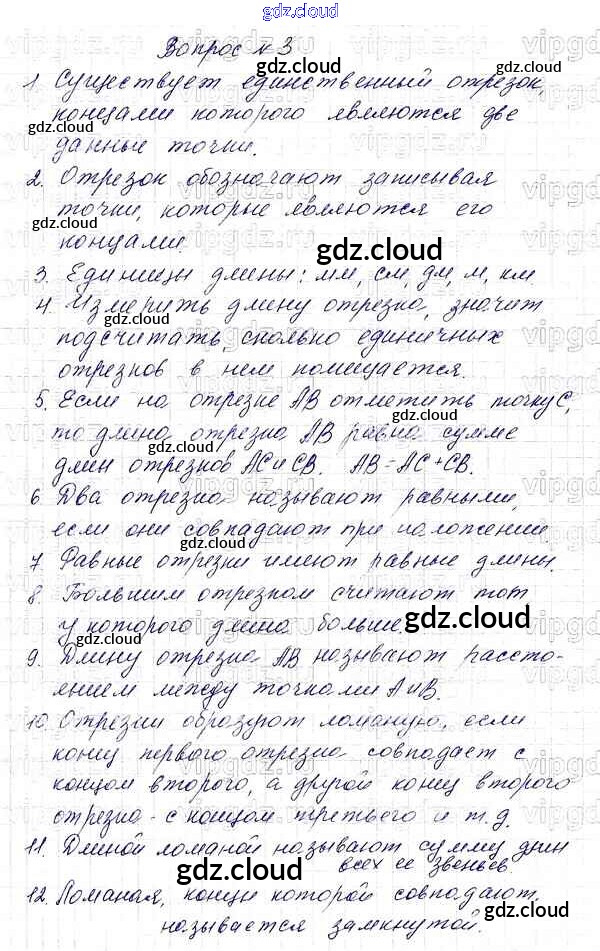 gdz.cloud
Вопрос № 3
1. Существует единственный отрезок,
концами которого являются две
данные точки.
2. Отрезок обозначают записывая
точки, которые являются его
концами.
3. Единицы длины: мм, см, дм, м, км.
4. Измерить длину отрезка, значит
подсчитать, сколько единичных
отрезков в нем помещается.
5. Если на отрезке AB отметить точку C,
то длина отрезка AB равна сумме
длин отрезков AC и CB. AB = AC + CB.
6. Два отрезка называют равными,
если они совпадают при наложении.
7. Равные отрезки имеют равные длины.
8. Большим отрезком считают тот
у которого длина больше.
9. Длину отрезка AB называют рассто-
янием между точками A и B.
10. Отрезки образуют ломаную, если
конец первого отрезка совпадает с
концом второго, а другой конец второго
отрезка - с концом третьего и т.д.
11. Длиной ломаной называют сумму длин
всех ее звеньев.
12. Ломаная, концы которой совпадают,
называется замкнутой.